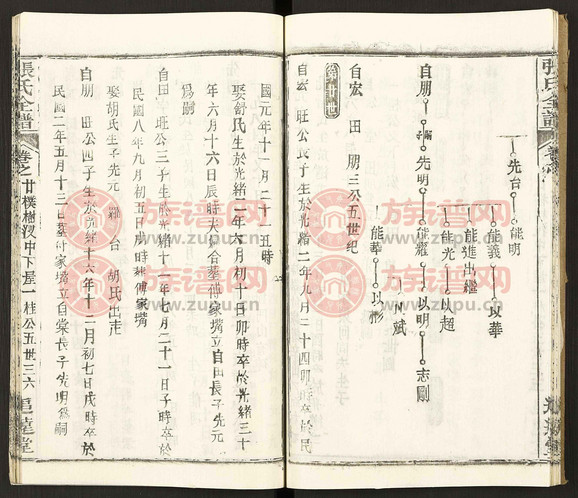 張氏全譜
先台 能明
能義 以華
能進出繼
自朋 先明 能耀 以明 志剛
能光 以超
以斌
能華 以彬
第廿世
自宏 田 朋 三公五世紀
自宏 旺公長子生於光緒二年九月二十四卯時卒於民
國元年十一月二十五時
娶舒氏生於光緒二年六月初十日卯時卒於光緒三十
年六月十六日辰時夫婦合墓傅家嘴立自田長子先元
爲嗣
自田 旺公三子生於光緒十一年七月二十一日子時卒於
民國八年九月初五日戌時葬傅家嘴
娶胡氏生子先元 羅 台 胡氏出走
自朋 旺公四子生於光緒十六年十二月初七日戌時卒於
民國二年五月十三日墓傅家嘴立自棠長子先明爲嗣
張氏全譜
卷之廿樸樹汊中下屋一桂公五世三六
族谱网
www.zupu.cn
族谱网
www.zupu.cn
族谱网
www.zupu.cn
族谱网
www.zupu.cn